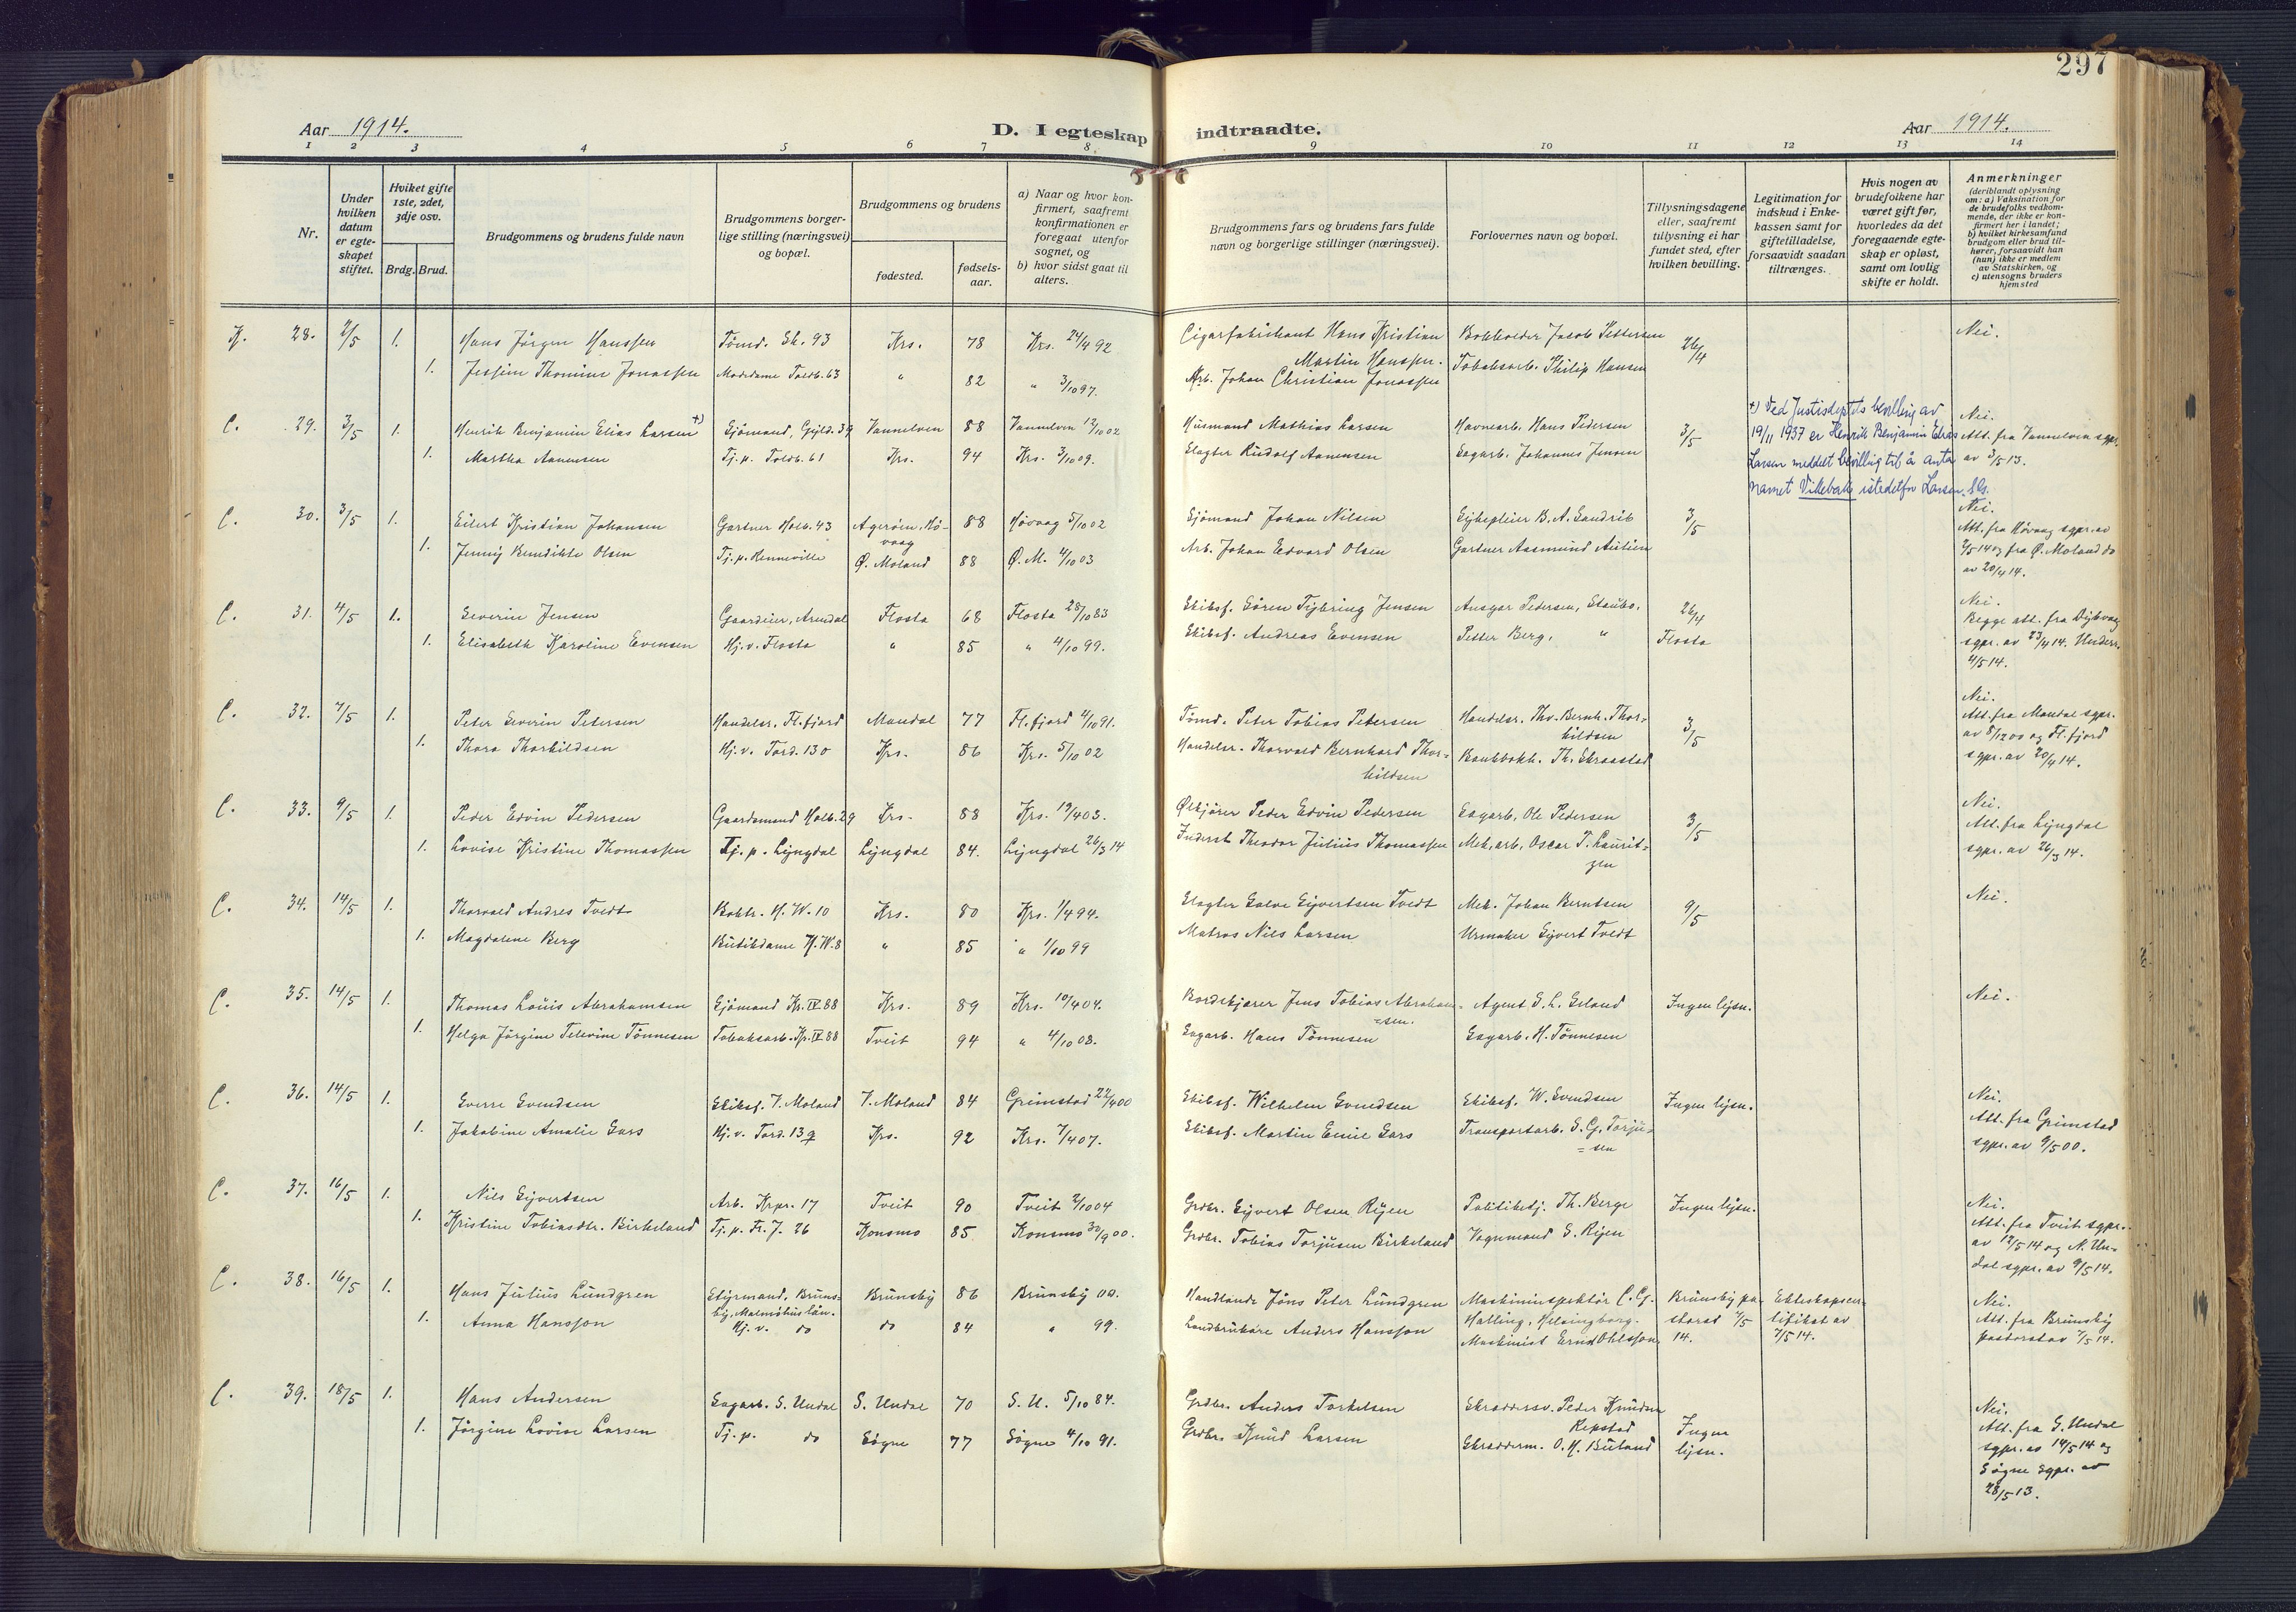 297
Aar 1914.
D. I egteskap indtraadte.
Aar 1914.
1 2 3 4 5 6 7 8 9 10 11 12 13 14
Nr.
Under hvilken datum er egteskapet stiftet.
Hviket gifte 1ste, 2det, 3dje osv.
Brdg. Brud.
Brudgommens og brudens fulde navn
Brudgommens borgerlige stilling (næringsvei) og bopæl.
Brudgommens og brudens
fødested.
fødselsaar.
a) Naar og hvor konfirmert, saafremt konfirmationen er foregaat utenfor sognet, og
b) hvor sidst gaat til alters.
Brudgommens fars og brudens fars fulde navn og borgerlige stillinger (næringsvei).
Forlovernes navn og bopæl.
Tillysningsdagene eller, saafremt tillysning ei har fundet sted, efter hvilken bevilling.
Legitimation for indskud i Enkekassen samt for giftetilladelse, forsaavidt saadan tiltrænges.
Hvis nogen av brudefolkene har været gift før, hvorledes da det foregaaende egteskap er opløst, samt om lovlig skifte er holdt.
Anmerkninger
(deriblandt oplysning om: a) Vaksination for de brudefolks vedkommende, der ikke er konfirmert her i landet, b) hvilket kirkesamfund brudgom eller brud tilhører, forsaavidt han (hun) ikke er medlem av Statskirken, og c) utensogns bruders hjemsted
K. 28. 2/5 1. Hans Jörgen Hanssen Tömd. Sk. 93 Krs. 78 Krs. 24/4 92 Cigarfabrikant Hans Kristian Martin Hanssen. Bokholder Jacob Pettersen 26/4 Nei.
1. Jessine Thomine Jonassen Modedame Toldb. 63 " 82 " 3/10 97. Arb. Johan Christian Jonassen Tobaksarb. Philip Hansen
C. 29. 3/5 1. Henrik Benjamin Elias Larsen +) Sjömand, Gyld. 39 Vannelven 88 Vannelven 12/10 02 Husmand Mathias Larsen Havnearb. Hans Pedersen 3/5 Nei.
1. Martha Aanensen Tj. p. Toldb. 61 Krs. 94 Krs. 3/10 09. Slagter Rudolf Aanensen Sagarb. Johannes Jensen Att. fra Vannelven sgpr. av 3/5 13.
+) Ved Justisdeptets bevilling av
19/11 1937 er Henrik Benjamin Elias
Larsen meddelt bevilling til å anta
navnet Villebak istedetfor Larsen.
C. 30. 3/5 1. Eilert Kristian Johansen Gartner Holb. 43 Agerøen, Høvaag 88 Høvaag 5/10 02 Sjömand Johan Nilsen Sykepleier B. A. Sandrib 3/5 Nei.
1. Jenny Bendikte Olsen Tj. p. Kenneville Ø. Moland 88 Ø. M. 4/10 03 Arb. Johan Edvard Olsen Gartner Aasmund Autien Att. fra Høvaag sgpr. av 2/5 14 og fra Ø. Moland do av 20/4 14.
C. 31. 4/5 1. Severin Jensen Gaardeier, Arendal Flosta 68 Flosta 28/10 83 Skibsf. Sören Tybring Jensen Ansgar Pedersen, Staubo. 26/4 Flosta Nei.
1. Elisabeth Karoline Evensen Hj. v. Flosta " 85 " 4/10 99. Skibsf. Andreas Evensen Petter Berg, " Begge att. fra Dybvaag sgpr. av 23/4 14. Underr. 4/5 14.
C. 32. 7/5 1. Peter Severin Petersen Handelsr. Fl. fjord Mandal 77 Fl. fjord 4/10 91. Tömd. Peter Tobias Petersen Handelsr. Thv. Bernh. Thorkildsen 3/5 Nei.
1. Thora Thorkildsen Hj. v. Tord. 130 Krs. 86 Krs. 5/10 02 Handelsr. Thorvald Bernhard Thorkildsen Bankbokh. Th. Skraastad Att. fra Mandal sgpr. av 8/12 00 og Fl. fjord sgpr. av 20/4 14.
C. 33. 9/5 1. Peder Edvin Pedersen Gaardsmand Holb. 29 Krs. 88 Krs. 19/4 03. Ølkjører Peder Edvin Pedersen Sagarb. Ole Pedersen 3/5 Nei.
1. Lovise Kristine Thomassen Tj. p. Lyngdal Lyngdal 84. Lyngdal 26/3 14 Inderst Theodor Julius Thomassen Mek. arb. Oscar T. Lauritzen Att. fra Lyngdal sgpr. av 26/3 14.
C. 34. 14/5 1. Thorvald Andres Tvedt Boktr. H. W. 10 Krs. 80 Krs. 1/4 94. Slagter Salve Syvertsen Tvedt Mek. Johan Berntsen 9/5 Nei.
1. Magdalene Berg Butikdame H. W. 8 " 85 " 1/10 99 Matros Nils Larsen Urmaker Syvert Tvedt
C. 35. 14/5 1. Thomas Louis Abrahamsen Sjömand Kr. IV 88 Krs. 89 Krs. 10/4 04. Bordskjærer Jens Tobias Abrahamsen. Agent S. L. Seland Ingen lysn. Nei.
1. Helga Jörgine Televine Tönnesen Tobaksarb. Kr. IV 88 Tveit 94 " 4/10 08. Sagarb. Hans Tönnesen Sagarb. H. Tönnesen
C. 36. 14/5 1. Sverre Svendsen Skibsf. V. Moland V. Moland 84 Grimstad 22/4 00 Skibsf. Wilhelm Svendsen Skibsf. W. Svendsen Ingen lysn. Nei.
1. Jakobine Amalie Gars Hj. v. Tord. 139 Krs. 92 Krs. 7/4 07. Skibsf. Martin Emil Gars Transportarb. S. G. Torjusen Att. fra Grimstad sgpr. av 9/5 00.
C. 37. 16/5 1. Nils Syvertsen Arb. Krpr. 17 Tveit 90 Tveit 2/10 04 Grdbr. Syvert Olsen Ryen Politibetj. Th. Berge Ingen lysn. Nei.
1. Kristine Tobiasdtr. Birkeland Tj. p. Fr. J. 26 Konsmo 85 Konsmo 30/9 00. Grdbr. Tobias Torjusen Birkeland Vognmand S. Ryen Att. fra Tveit sgpr. av 12/5 14 og N. Undal sgpr. av 9/5 14.
C. 38. 16/5 1. Hans Julius Lundgren Styrmand, Brunsby, Malmöhus län. Brunsby 86 Brunsby 00. Handlande Jöns Peter Lundgren Maskininspektör C. G. Halling, Helsingborg. Brunsby pastorat 7/5 14. Ekteskapscertifikat av 7/5 14. Nei.
1. Anna Hansson Hj. v. do do 84 " 99. Landbrukare Anders Hansson Maskinist Ernst Ohlsson Att. fra Brunsby pastorat av 7/5 14.
C. 39. 18/5 1. Hans Andersen Sagarb. S. Undal S. Undal 70 S. U. 5/10 84. Grdbr. Anders Torkelsen Skræddersv. Peder Knudsen Repstad Ingen lysn. Nei.
1. Jörgine Lovise Larsen Tj. p. do Søgne 77 Søgne 4/10 91. Grdbr. Knud Larsen Skrædderm. O. H. Buland Att. fra S. Undal sgpr. av 14/5 14 og Søgne sgpr. av 28/5 13.